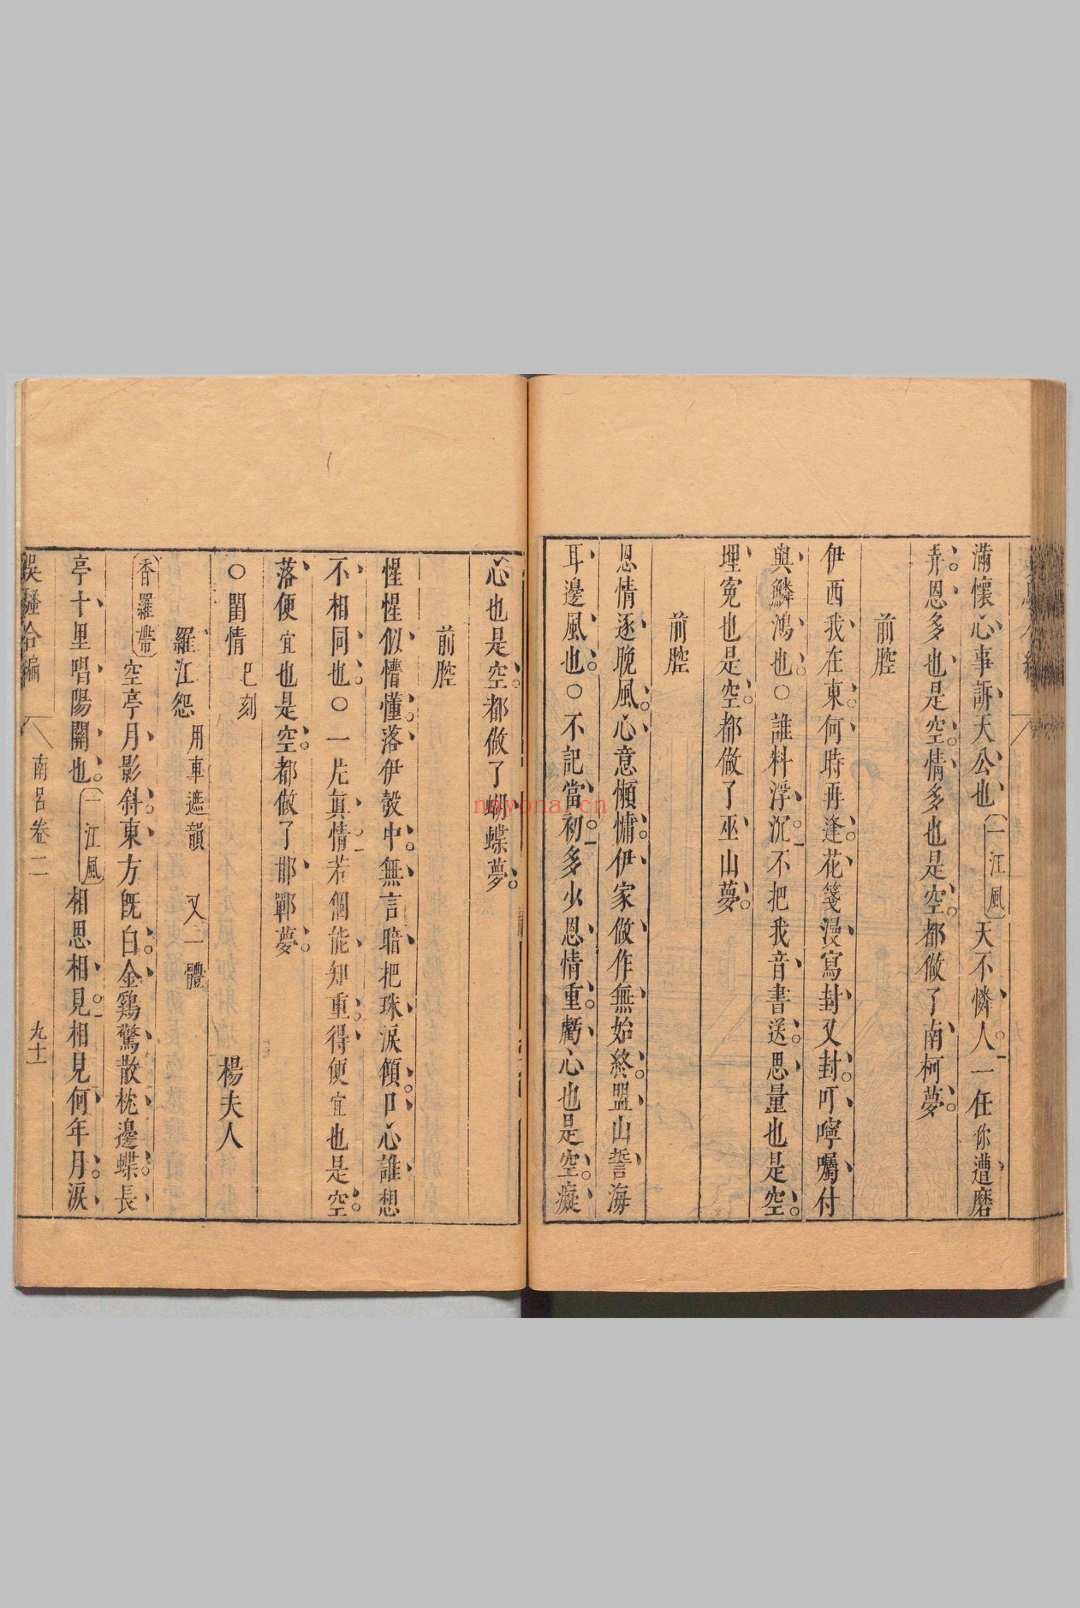 滿懷心事訴天公也一江風天不憐人一任你遭磨
弄恩多也是空情多也是空都做了南柯夢
前腔
伊西我在東何時再逢花箋漫寫封又封叮嚀囑付
與鱗鴻也○誰料浮沉不把我音書送思量也是空
埋冤也是空都做了巫山夢
前腔
恩情逐曉風心意懶慵伊家做作無始終盟山誓海
耳邊風也○不記當初多少恩情重虧心也是空癡
心也是空都做了蝴蝶夢
前腔
惺惺似懵懂落伊彀中無言暗把珠淚傾口心誰想
不相同也○一片真情若個能知重得便宜也是空
落便宜也是空都做了邯鄲夢
○閨情 已刻 楊夫人
羅江怨 用車遮韻 又一體
香羅帶空亭月影斜東方旣白金鷄驚散枕邊蝶長
亭十里唱陽關也一江風相思相見相見何年月淚
吳騷合編 南呂卷二 九十一
nayona.cn